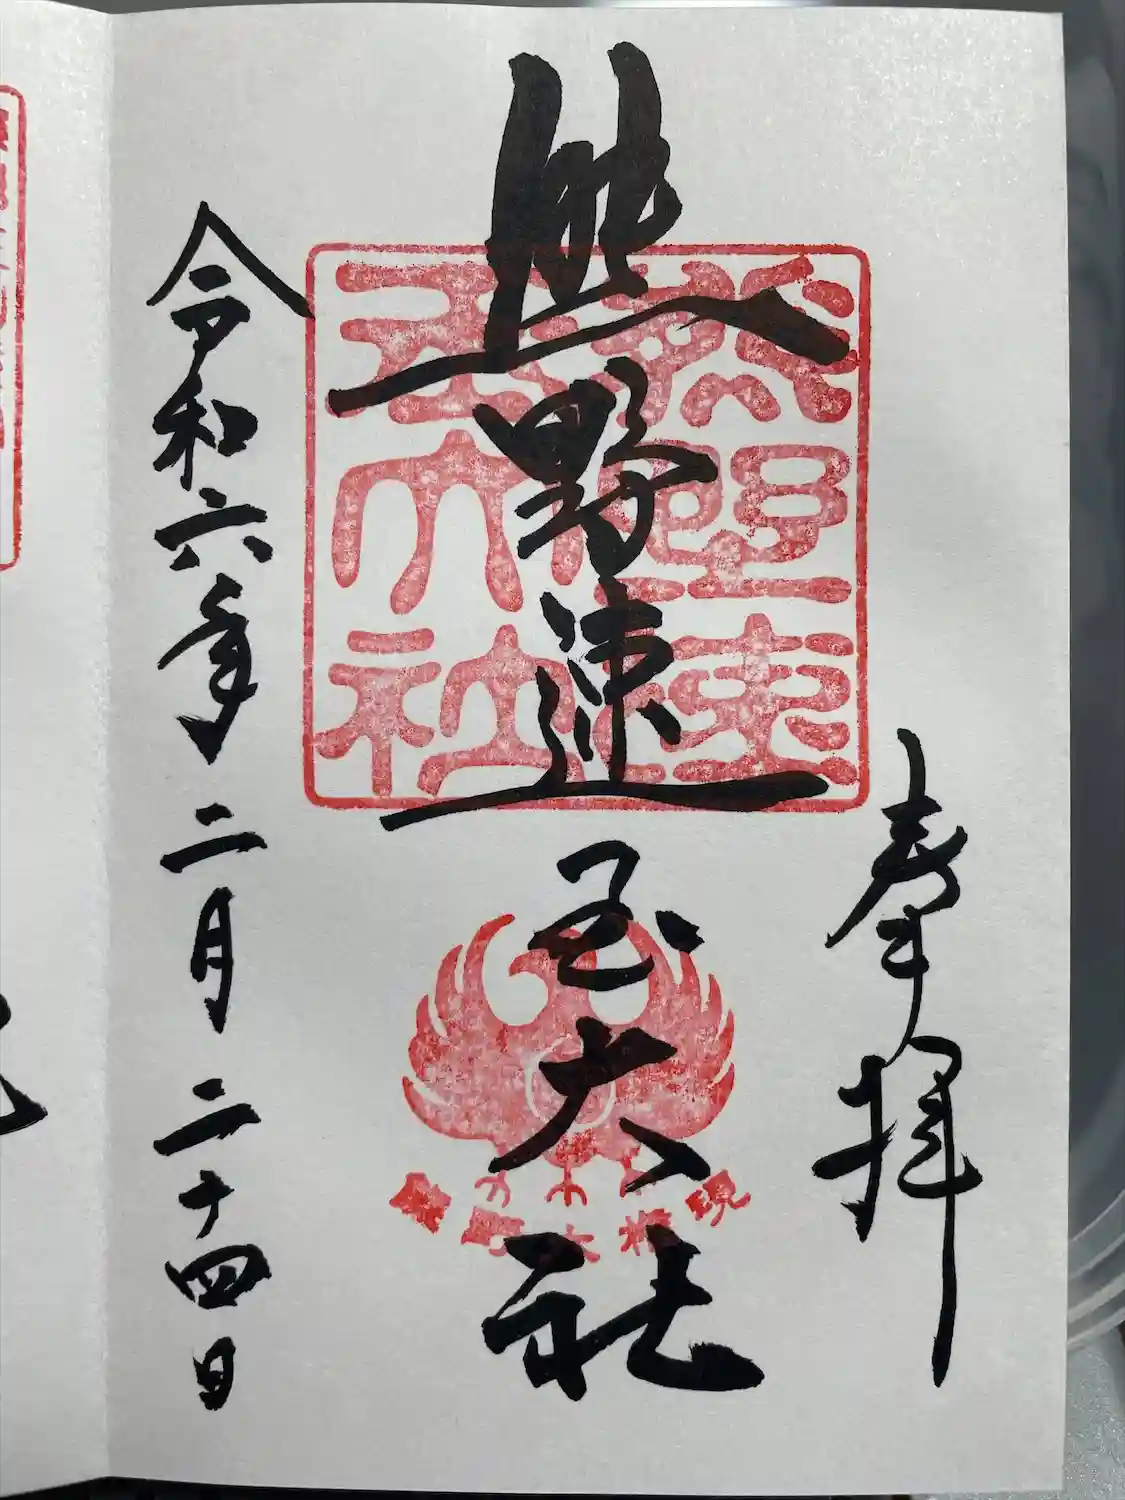 奉拝
熊野速玉大社
熊野速
玉大社
熊野大権現
令和六年二月二十四日